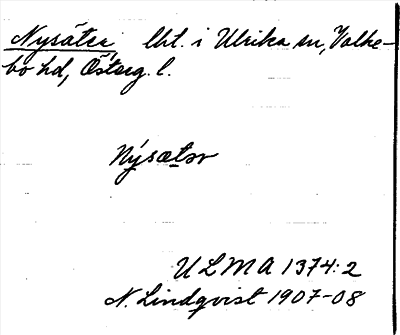 Nysäter, lht. i Ulrika sn, Valke-
bo hd, Österg. l.
Nýsætər
ULMA 1374:2
N. Lindqvist 1907-08